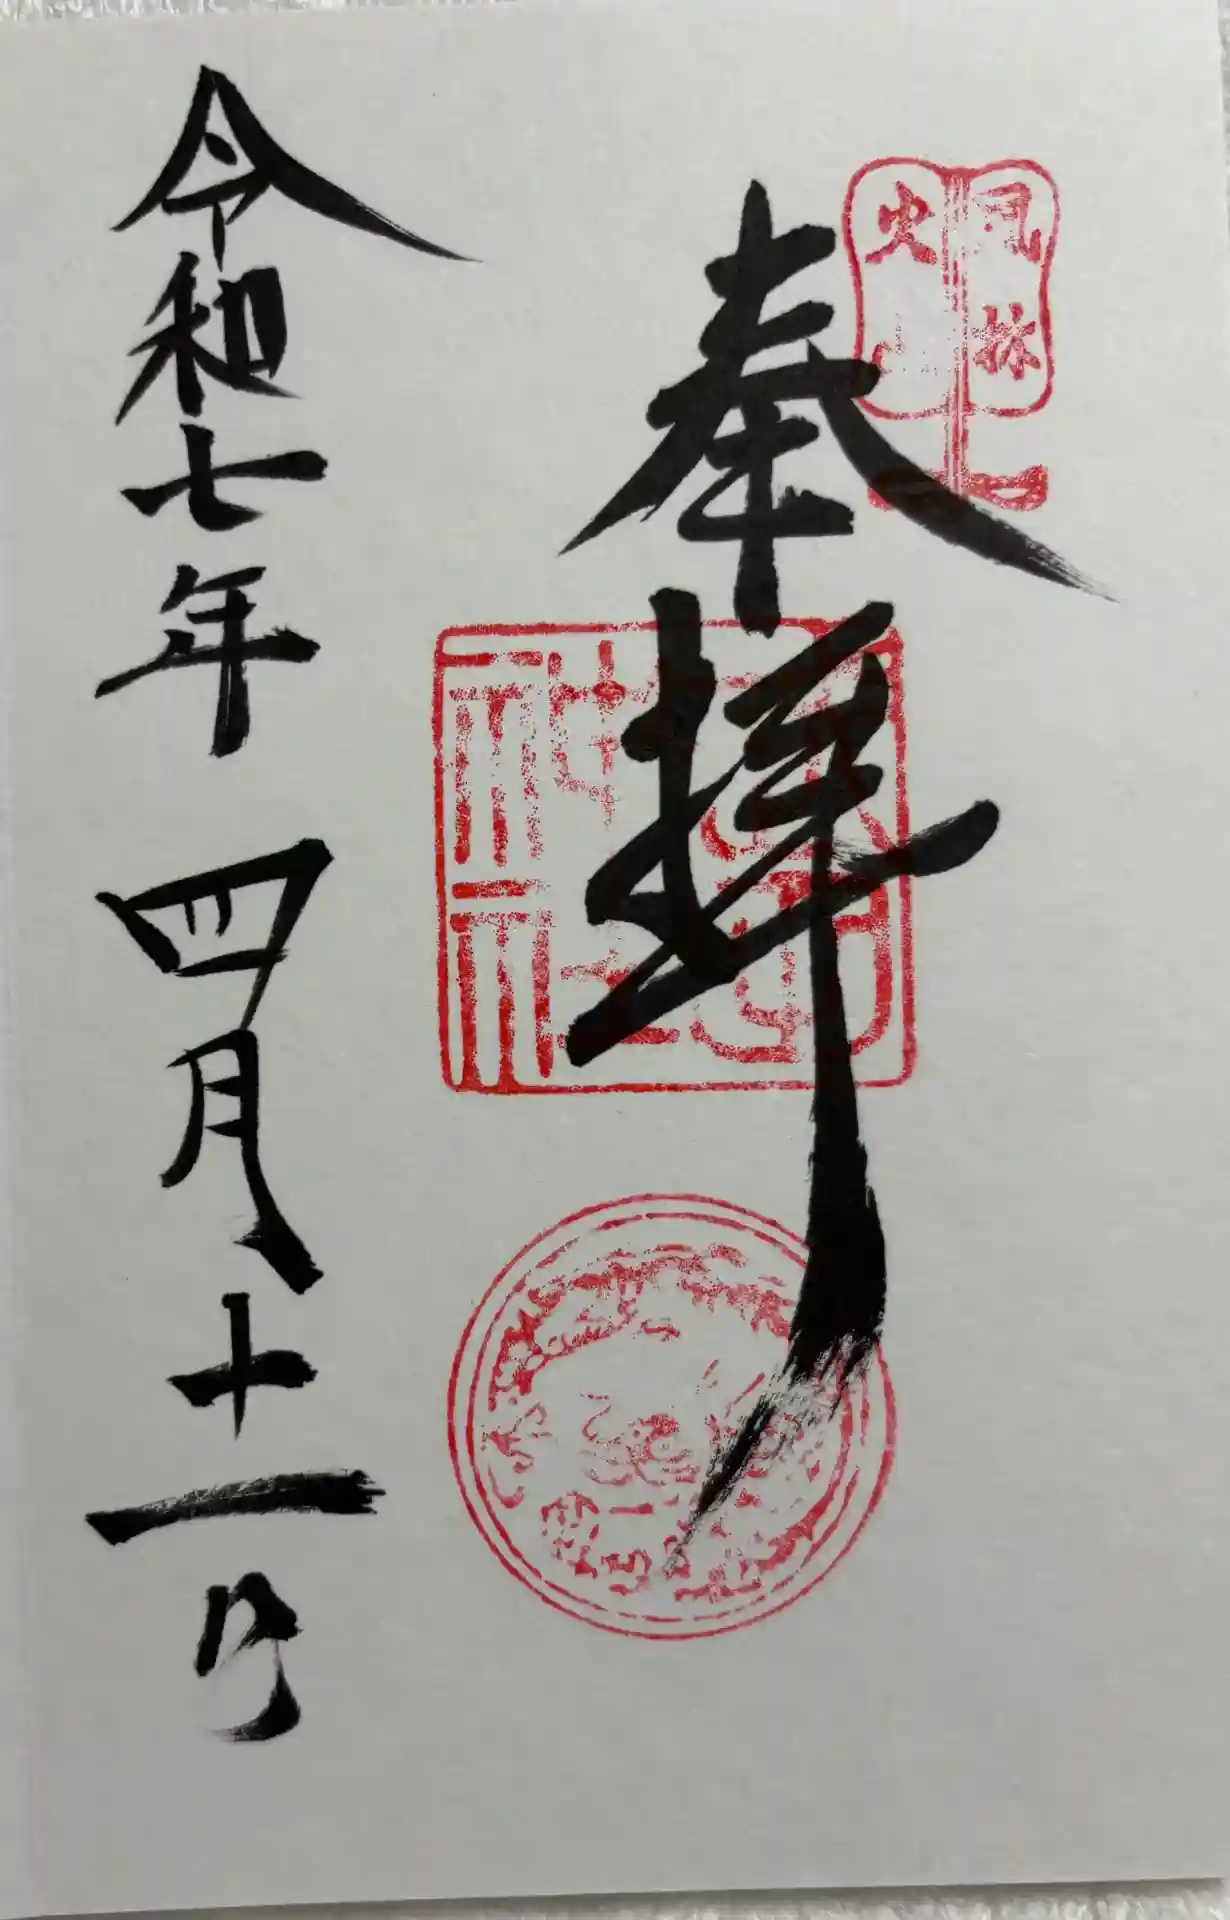 風林
火山
奉拝
令和七年四月十一日